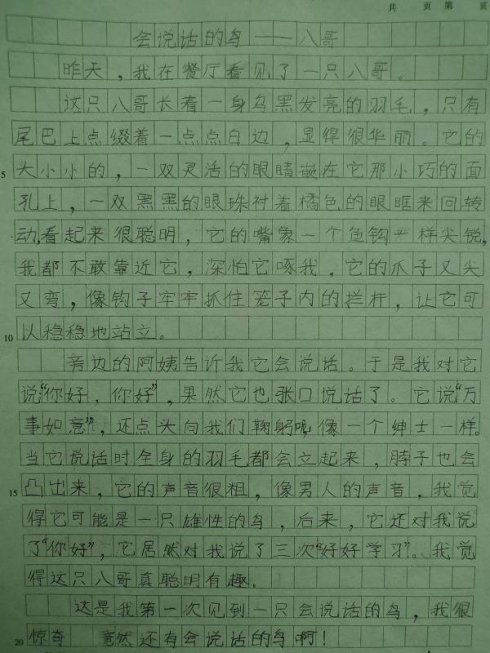 共 页 第 页
会说话的鸟——八哥
昨天，我在餐厅看见了一只八哥。
这只八哥长着一身乌黑发亮的羽毛，只有
尾巴上点缀着一点点白边，显得很华丽。它的
5 大小小的，一双灵活的眼睛嵌在它那小巧的面
孔上，一双黑黑的眼珠衬着橘色的眼眶来回转
动，看起来很聪明，它的嘴象一个鱼钩一样尖锐，
我都不敢靠近它，深怕它啄我，它的爪子又尖
又弯，像钩子牢牢抓住笼子内的拦杆，让它可
10 以稳稳地站立。
旁边的阿姨告诉我它会说话。于是我对它
说“你好，你好”，果然它也张口说话了。它说“万
事如意”，还点头向我们鞠躬呢，像一个绅士一样。
当它说话时全身的羽毛都会立起来，脖子也会
15 凸出来，它的声音很粗，像男人的声音，我觉
得它可能是一只雄性的鸟，后来，它还对我说
了“你好”，它居然对我说了三次“好好学习”。我觉
得这只八哥真聪明有趣。
这是我第一次见到一只会说话的鸟，我很
20 惊奇 竟然还有会说话的鸟啊！